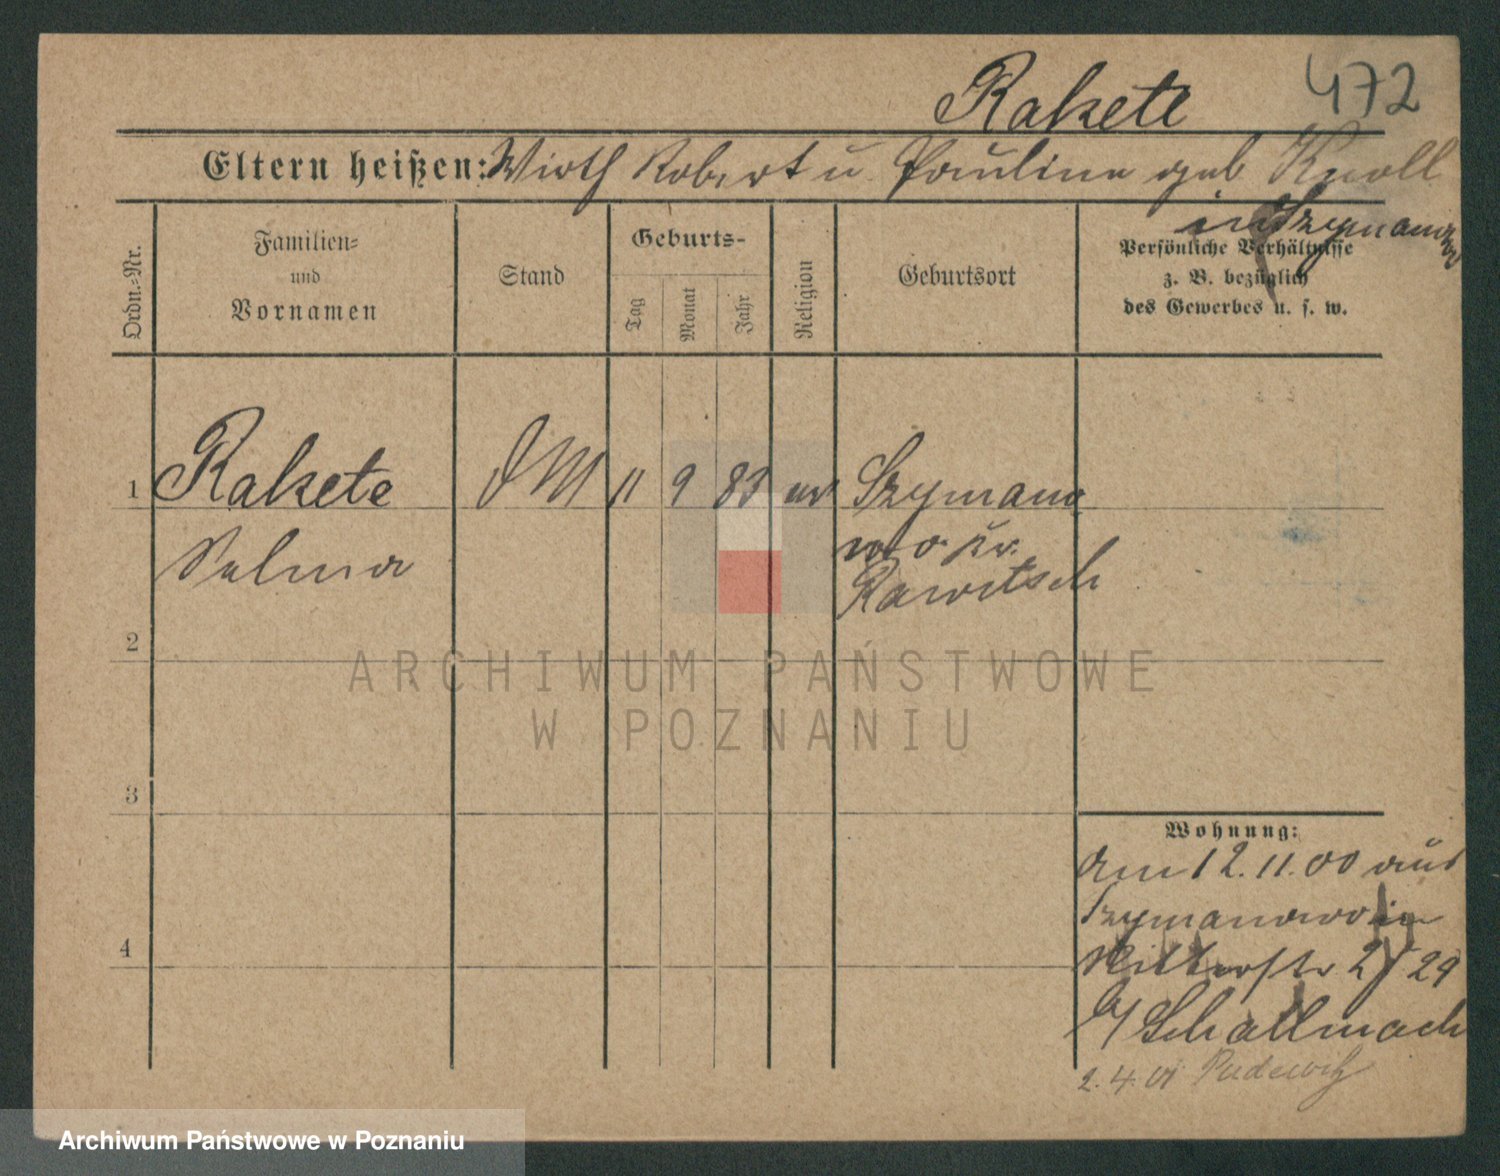 Rakete
472
Eltern heißen: Wirth Robert u Pauline geb Knoll
in Szymanowo
Ordn.-Nr.
Familien-
und
Vornamen
Stand
Geburts-
Tag
Monat
Jahr
Religion
Geburtsort
Persönliche Verhältnisse
z. B. bezüglich
des Gewerbes u. s. w.
1 Rakete DM 11 9 83 ev Szymano
wo Kr.
Selma
Rawitsch
2
ARCHIWUM PAŃSTWOWE
W POZNANIU
3
Wohnung:
am 12.11.00 aus
Szymanowo in
4
Ritterstr 29
b/ Schallmach
2.4.01 Pudewitz
Archiwum Państwowe w Poznaniu